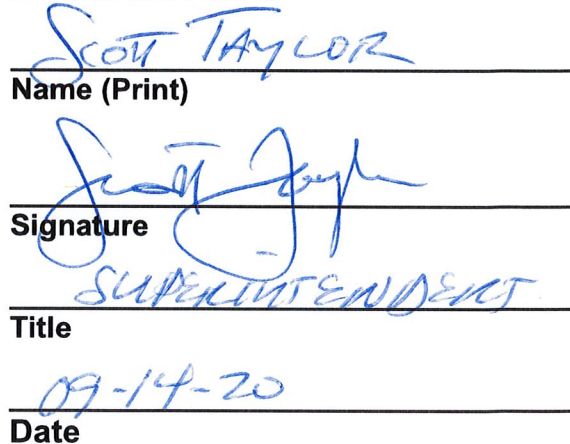 SCOTT TAYLOR
Name (Print)
Scott Taylor
Signature
SUPERINTENDENT
Title
09-14-20
Date